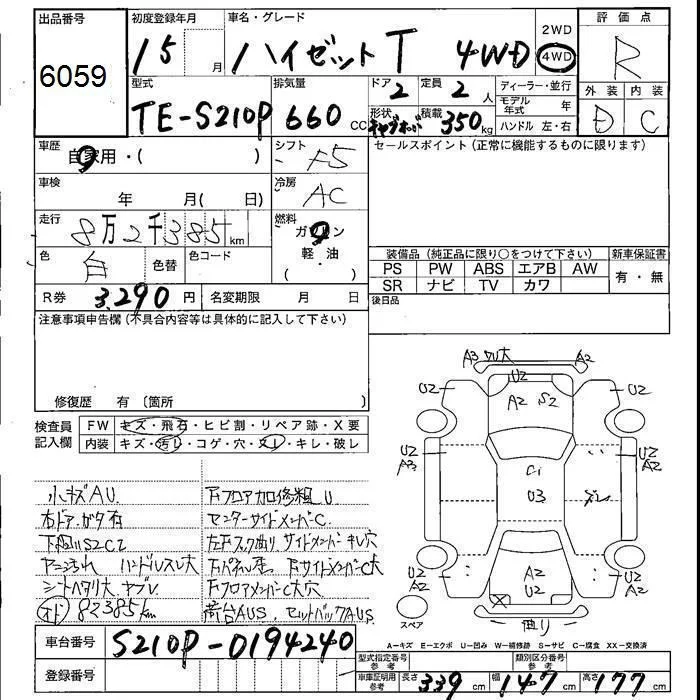 出品番号 初度登録年月 車名・グレード 2WD 評価点
6059 15 月 ハイゼットT 4WD 4WD R
型式 排気量 ドア 定員 ディーラー・並行 外装 内装
TE-S210P 660 CC 2 2人 モデル年式 年 D C
形状 積載 350kg ハンドル 左・右
車歴 自家用・( ) シフト F5 セールスポイント(正常に機能するものに限ります)
車検 年 月( 日) 冷房 AC
走行 8万2千385 km 燃料 ガソリン
軽・油
( )
色 白 色替 色コード
装備品(純正品に限り○をつけて下さい) 新車保証書
PS PW ABS エアB AW 有・無
SR ナビ TV カワ
R券 3,290円 名変期限 月 日 後日品
注意事項申告欄(不具合内容等は具体的に記入して下さい)
修復歴 有 〔箇所
検査員記入欄 FW キズ・飛石・ヒビ割・リペア跡・X要
内装 キズ・汚レ・コゲ・穴・ヌレ・キレ・破レ
A3 大 A2
U2
U2 A2 S2 U2
U2 A3 C1 U2 A2
U3
U2 A2 A2 U2 U2 A2
スペア 曲り
小キズAU
右ドア ガタ
S2C2
ハンドルスレ大
シートヘタリ大 ヤブレ
オド 82385km
Fフロア加修粗U
センターサイドメンバーC
サイドメンバー キレ穴
FサイドメンバーC大
FフロアメンバーC大穴
荷台AUS セットバックAUS
A=キズ E=エクボ U=凹み W=補修跡 S=サビ C=腐食 XX=交換済
車台番号 S210P-0194240
登録番号
型式指定番号参考 類別区分番号参考
車庫証明用参考 長さ 339cm 幅 147cm 高さ 177cm